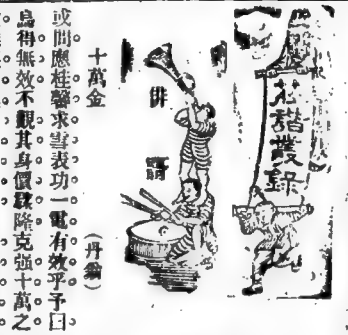 莊諧叢錄
俳
十萬金
(丹翁)
或問應桂馨求雪表功一電有效乎予曰
烏得無效不觀其身價隆克强十萬之